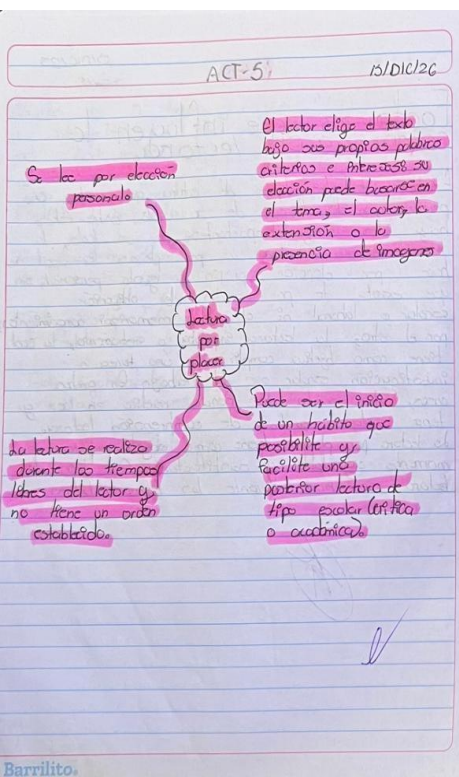 ACT-5
13/DIC/26
Se lee por elección
personal.
El lector elige el texto
bajo sus propios
criterios e intereses su
elección puede basarse en
el tema, el autor, la
extensión o la
presencia de imagenes
Lectura
por
placer
La lectura se realiza
durante los tiempos
libres del lector y
no tiene un orden
establecido.
Puede ser el inicio
de un hábito que
posibilite y
facilite una
posterior lectura de
tipo escolar (critica
o académica).
Barrilito.